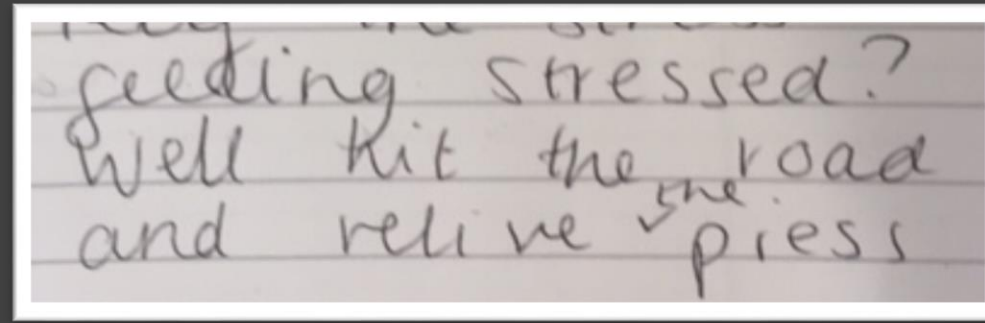 feeling stressed?
Well hit the road
and relive the press